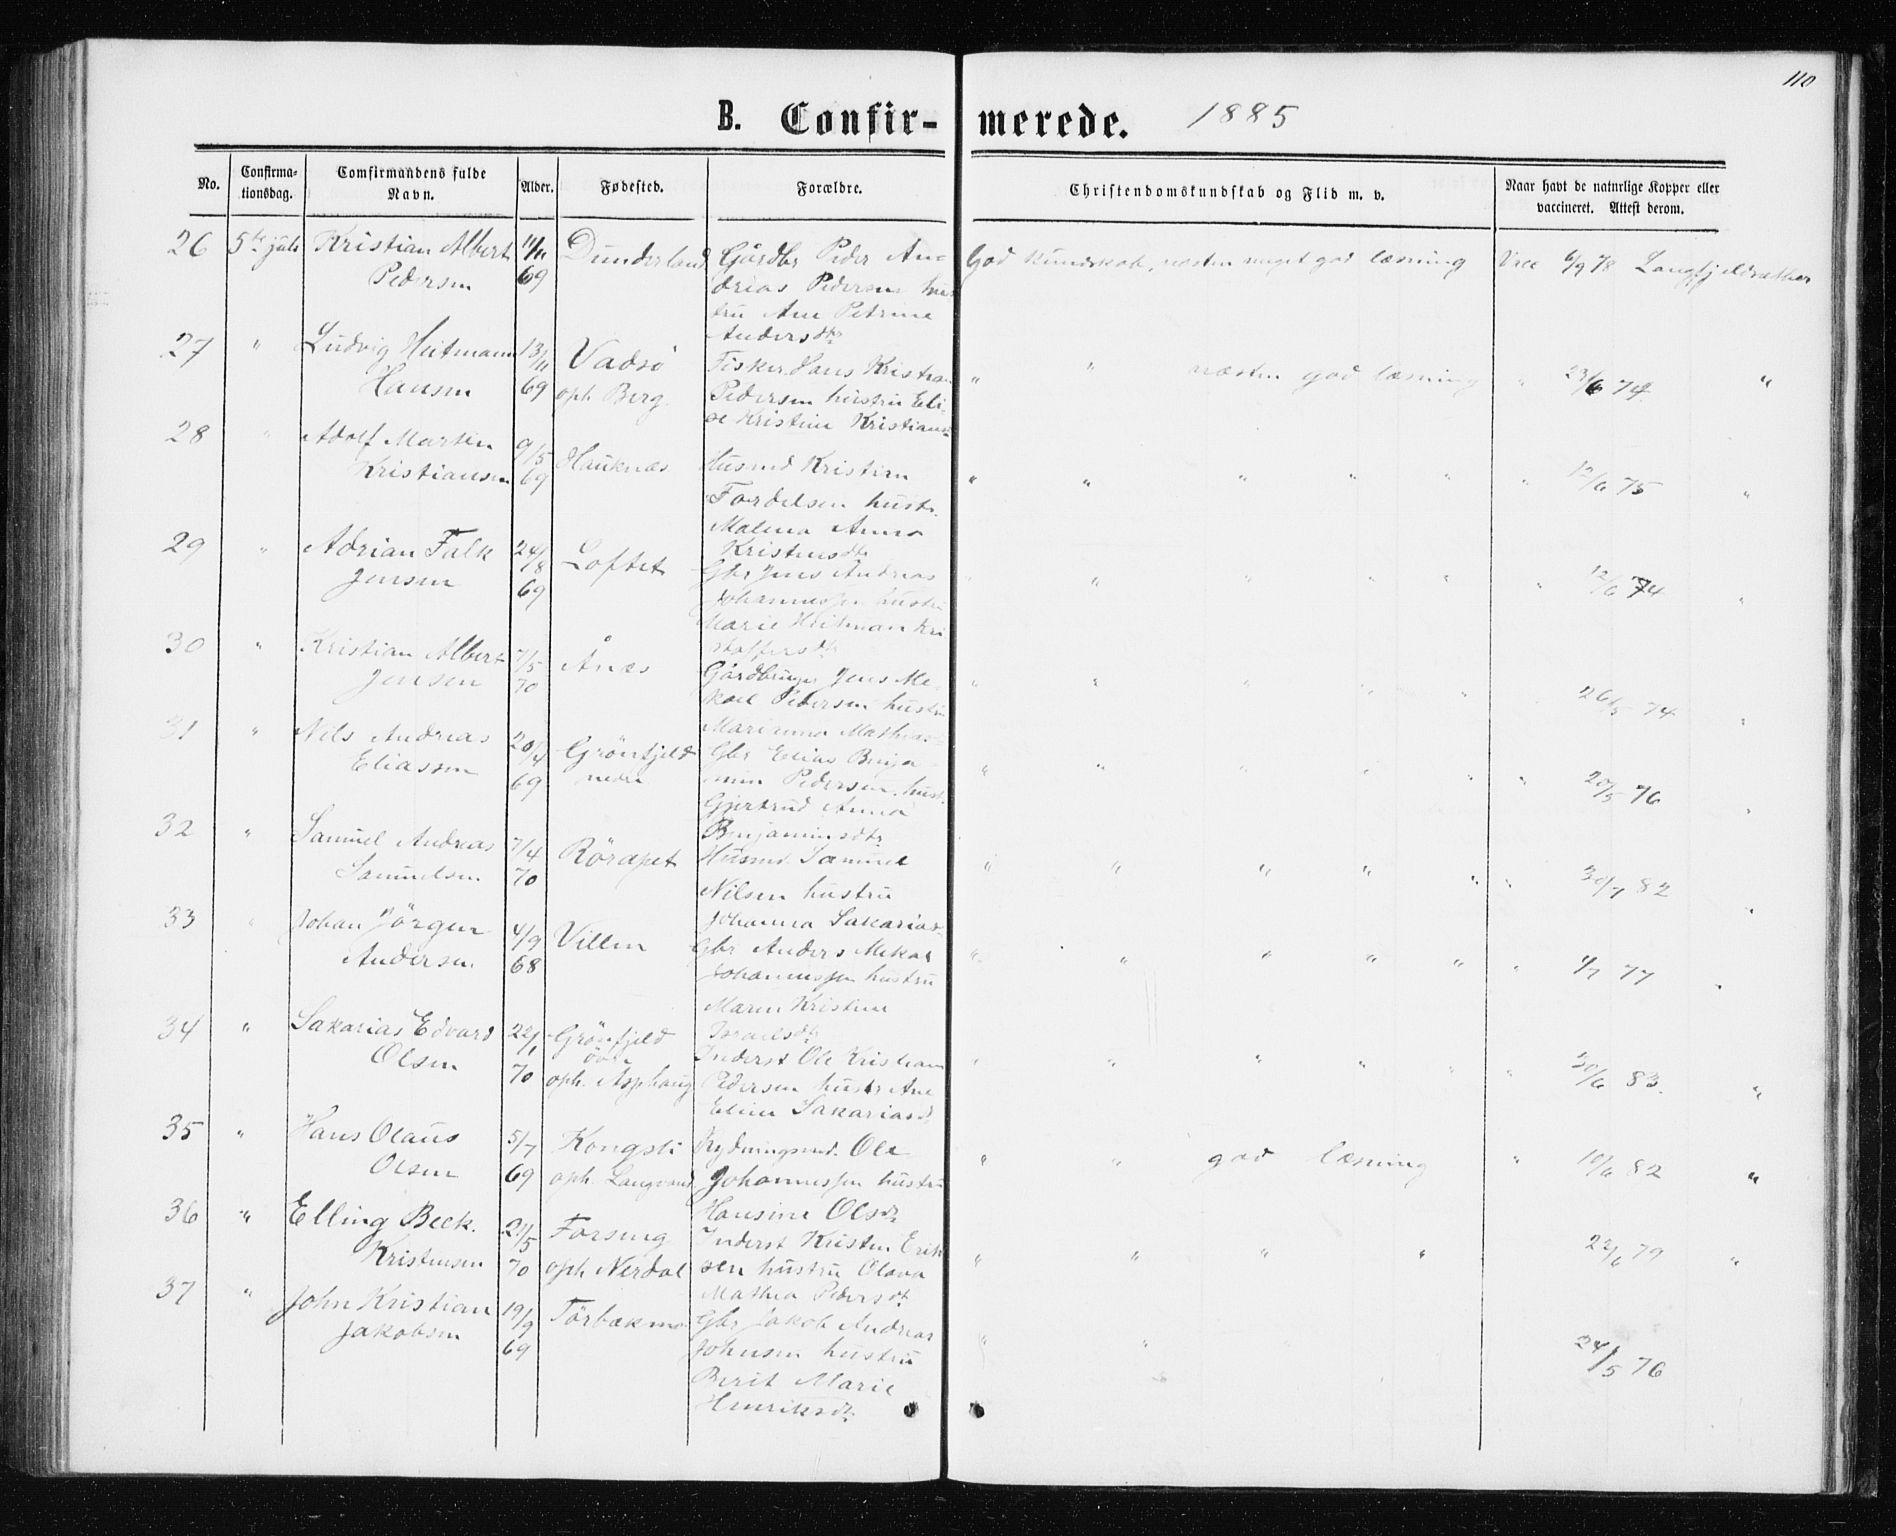 110
B. Confir- merede. 1885
No. Confirma- tionsdag. Comfirmandens fulde Navn. Alder. Fødested. Forældre. Christendomskundskab og Flid m. v. Naar havt de naturlige Kopper eller vaccineret. Attest derom.
26 5te juli Kristian Albert 11/11 Dunderland Gårdbr Peder An- God Kundskab, næsten meget god læsning Vacc 6/9 78 Langfjeldsæther
Pedersen 69 drias Pedersen hus
tru Ane Petrine
Andersdtr
27 " Ludvig Heitmann 13/11 Vadsø Fisker Hans Kristian " " næsten god læsning " 23/6 74 "
Hansen 69 oph Berg. Pedersen hustru Eli-
se Kristine Kristians
28 " Adolf Martin 9/5 Hauknæs Husmd Kristian " " " " " " 12/6 75 "
Kristiansen 69 Fordelsen hustr.
Malena Anna
Kristensdtr
29 " Adrian Falk 24/8 Loftet Gbr Jens Andreas " " " " " " 12/6 74 "
Jensen 69 Johannessen hustru
Marie Heitman Kri
stoffersdtr
30 " Kristian Albert 7/5 Ånæs Gårdbruger Jens Me- " " " " " 26/5 74 "
Jensen 70 kael Pedersen hustru
Marianna Mathias
31 " Nils Andreas 20/4 Grönfjeld Gbr Elias Binja- " " " " " " 20/5 76 "
Eliassen 69 nedre min Pedersen, hust.
Gjertrud Anna
Benjaminsdtr
32 " Samuel Andreas 7/4 Rörapet Husmd. Samuel " " " " " " 30/7 82 "
Samuelsen 70 Nilsen hustru
Johanna Sakarias
33 " Johan Jörgen 4/9 Villen Gbr Anders Mikal " " " " " " 4/7 77 "
Andersen 68 Johannessen hustru
Maren Kristine
Israelsdtr
34 " Sakarias Edvard 22/1 Grönfjeld Inderst Ole Kristian " " " " " " 30/6 83. "
Olsen 70 övre oph. Asphaug Pedersen hustr Ane
Eline Sakariasd
35 " Hans Olaus 5/7 Kongsli Rydningsmd. Ole " " god læsning " 10/6 82 "
Olsen 69 oph. Langvand Johannessen hustru
Hansine Olsdtr
36 " Elling Beck. 21/5 Forsmo Inderst Kristen Erik " " " " 22/6 79 "
Kristensen 70 oph Nerdal sen hustru Olava
Mathea Pedersdt
37 " John Kristian 19/9 Törbækmo Gbr Jakob Andreas " " 24/5 76
Jakobsen 69 Johnsen hustru
Berit Marie
Henriksdtr